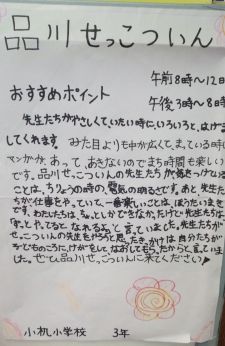 品川せっこついん
午前8時〜12時
おすすめポイント
午後3時〜8時
先生たちがやさしくていたい時に、いろいろと、はげま
してくれます。みた目よりも中が広くて、まっている時に
マンガが、あって、あきないのでまち時間も楽しい
です。品川せっこついんの先生たちが気をつけている
ことは、ちりょうの時の、電気の明るさです。あと先生た
ちが仕事をやっていて、一番楽しいことは、ほうたいまきで
す、わたしたちは、ちょっとしかできなかったけど先生たちは
「ずっとやってるとなれるよ」と言っていました。先生たちが
せっこついんの先生をやろうと思ったきっかけは自分たちが
子どものころに、けがをして なおしてもらったからと言っていまし
た。ぜひ品川せっこついんに来てください♪
小机小学校 3年